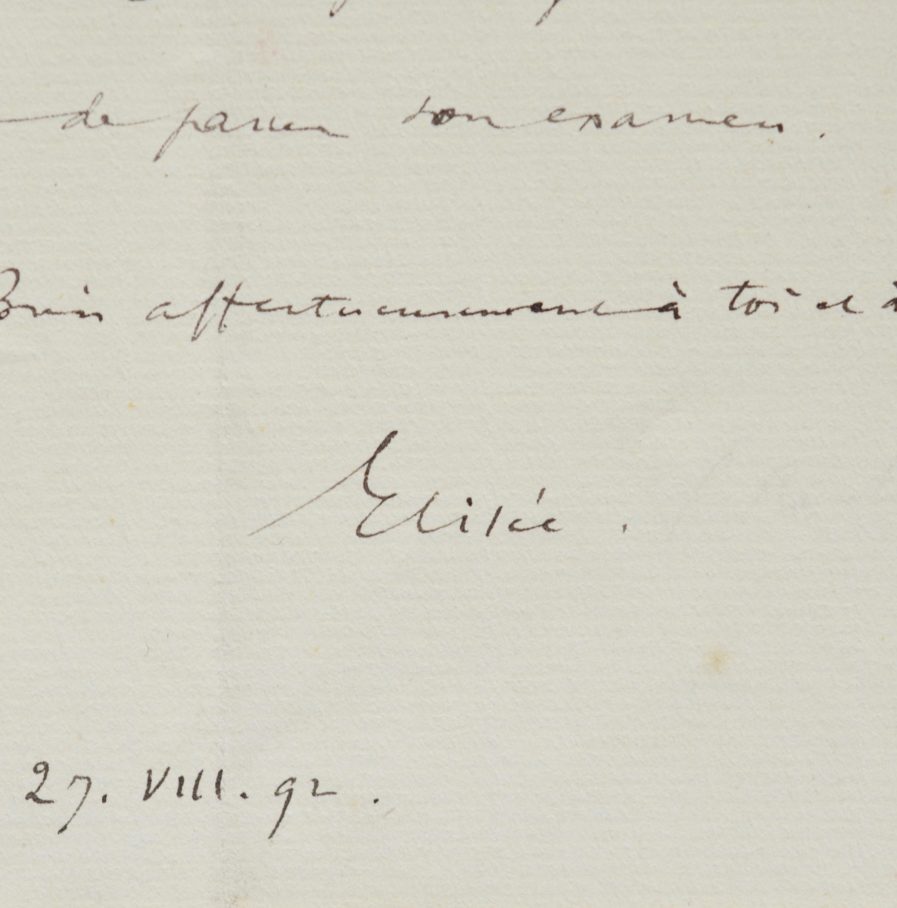 de passer son examen.
Bien affectueusement à toi et à
Elisée.
27. VIII. 92.